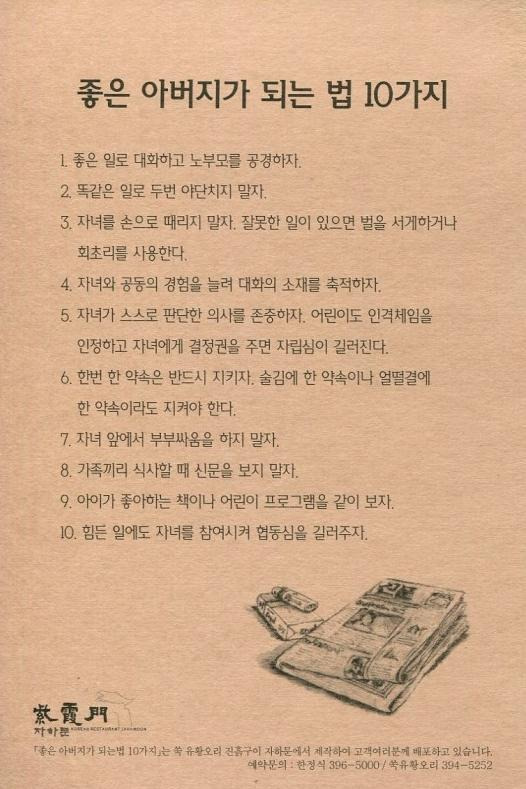 좋은 아버지가 되는 법 10가지
1. 좋은 일로 대화하고 노부모를 공경하자.
2. 똑같은 일로 두번 야단치지 말자.
3. 자녀를 손으로 때리지 말자. 잘못한 일이 있으면 벌을 서게하거나
회초리를 사용한다.
4. 자녀와 공동의 경험을 늘려 대화의 소재를 축적하자.
5. 자녀가 스스로 판단한 의사를 존중하자. 어린이도 인격체임을
인정하고 자녀에게 결정권을 주면 자립심이 길러진다.
6. 한번 한 약속은 반드시 지키자. 술김에 한 약속이나 얼떨결에
한 약속이라도 지켜야 한다.
7. 자녀 앞에서 부부싸움을 하지 말자.
8. 가족끼리 식사할 때 신문을 보지 말자.
9. 아이가 좋아하는 책이나 어린이 프로그램을 같이 보자.
10. 힘든 일에도 자녀를 참여시켜 협동심을 길러주자.
紫霞門
자하문 KOREAN RESTAURANT JAHAMOON
「좋은 아버지가 되는법 10가지」는 쑥 유황오리 진흙구이 자하문에서 제작하여 고객여러분께 배포하고 있습니다.
예약문의 : 한정식 396-5000 / 쑥유황오리 394-5252